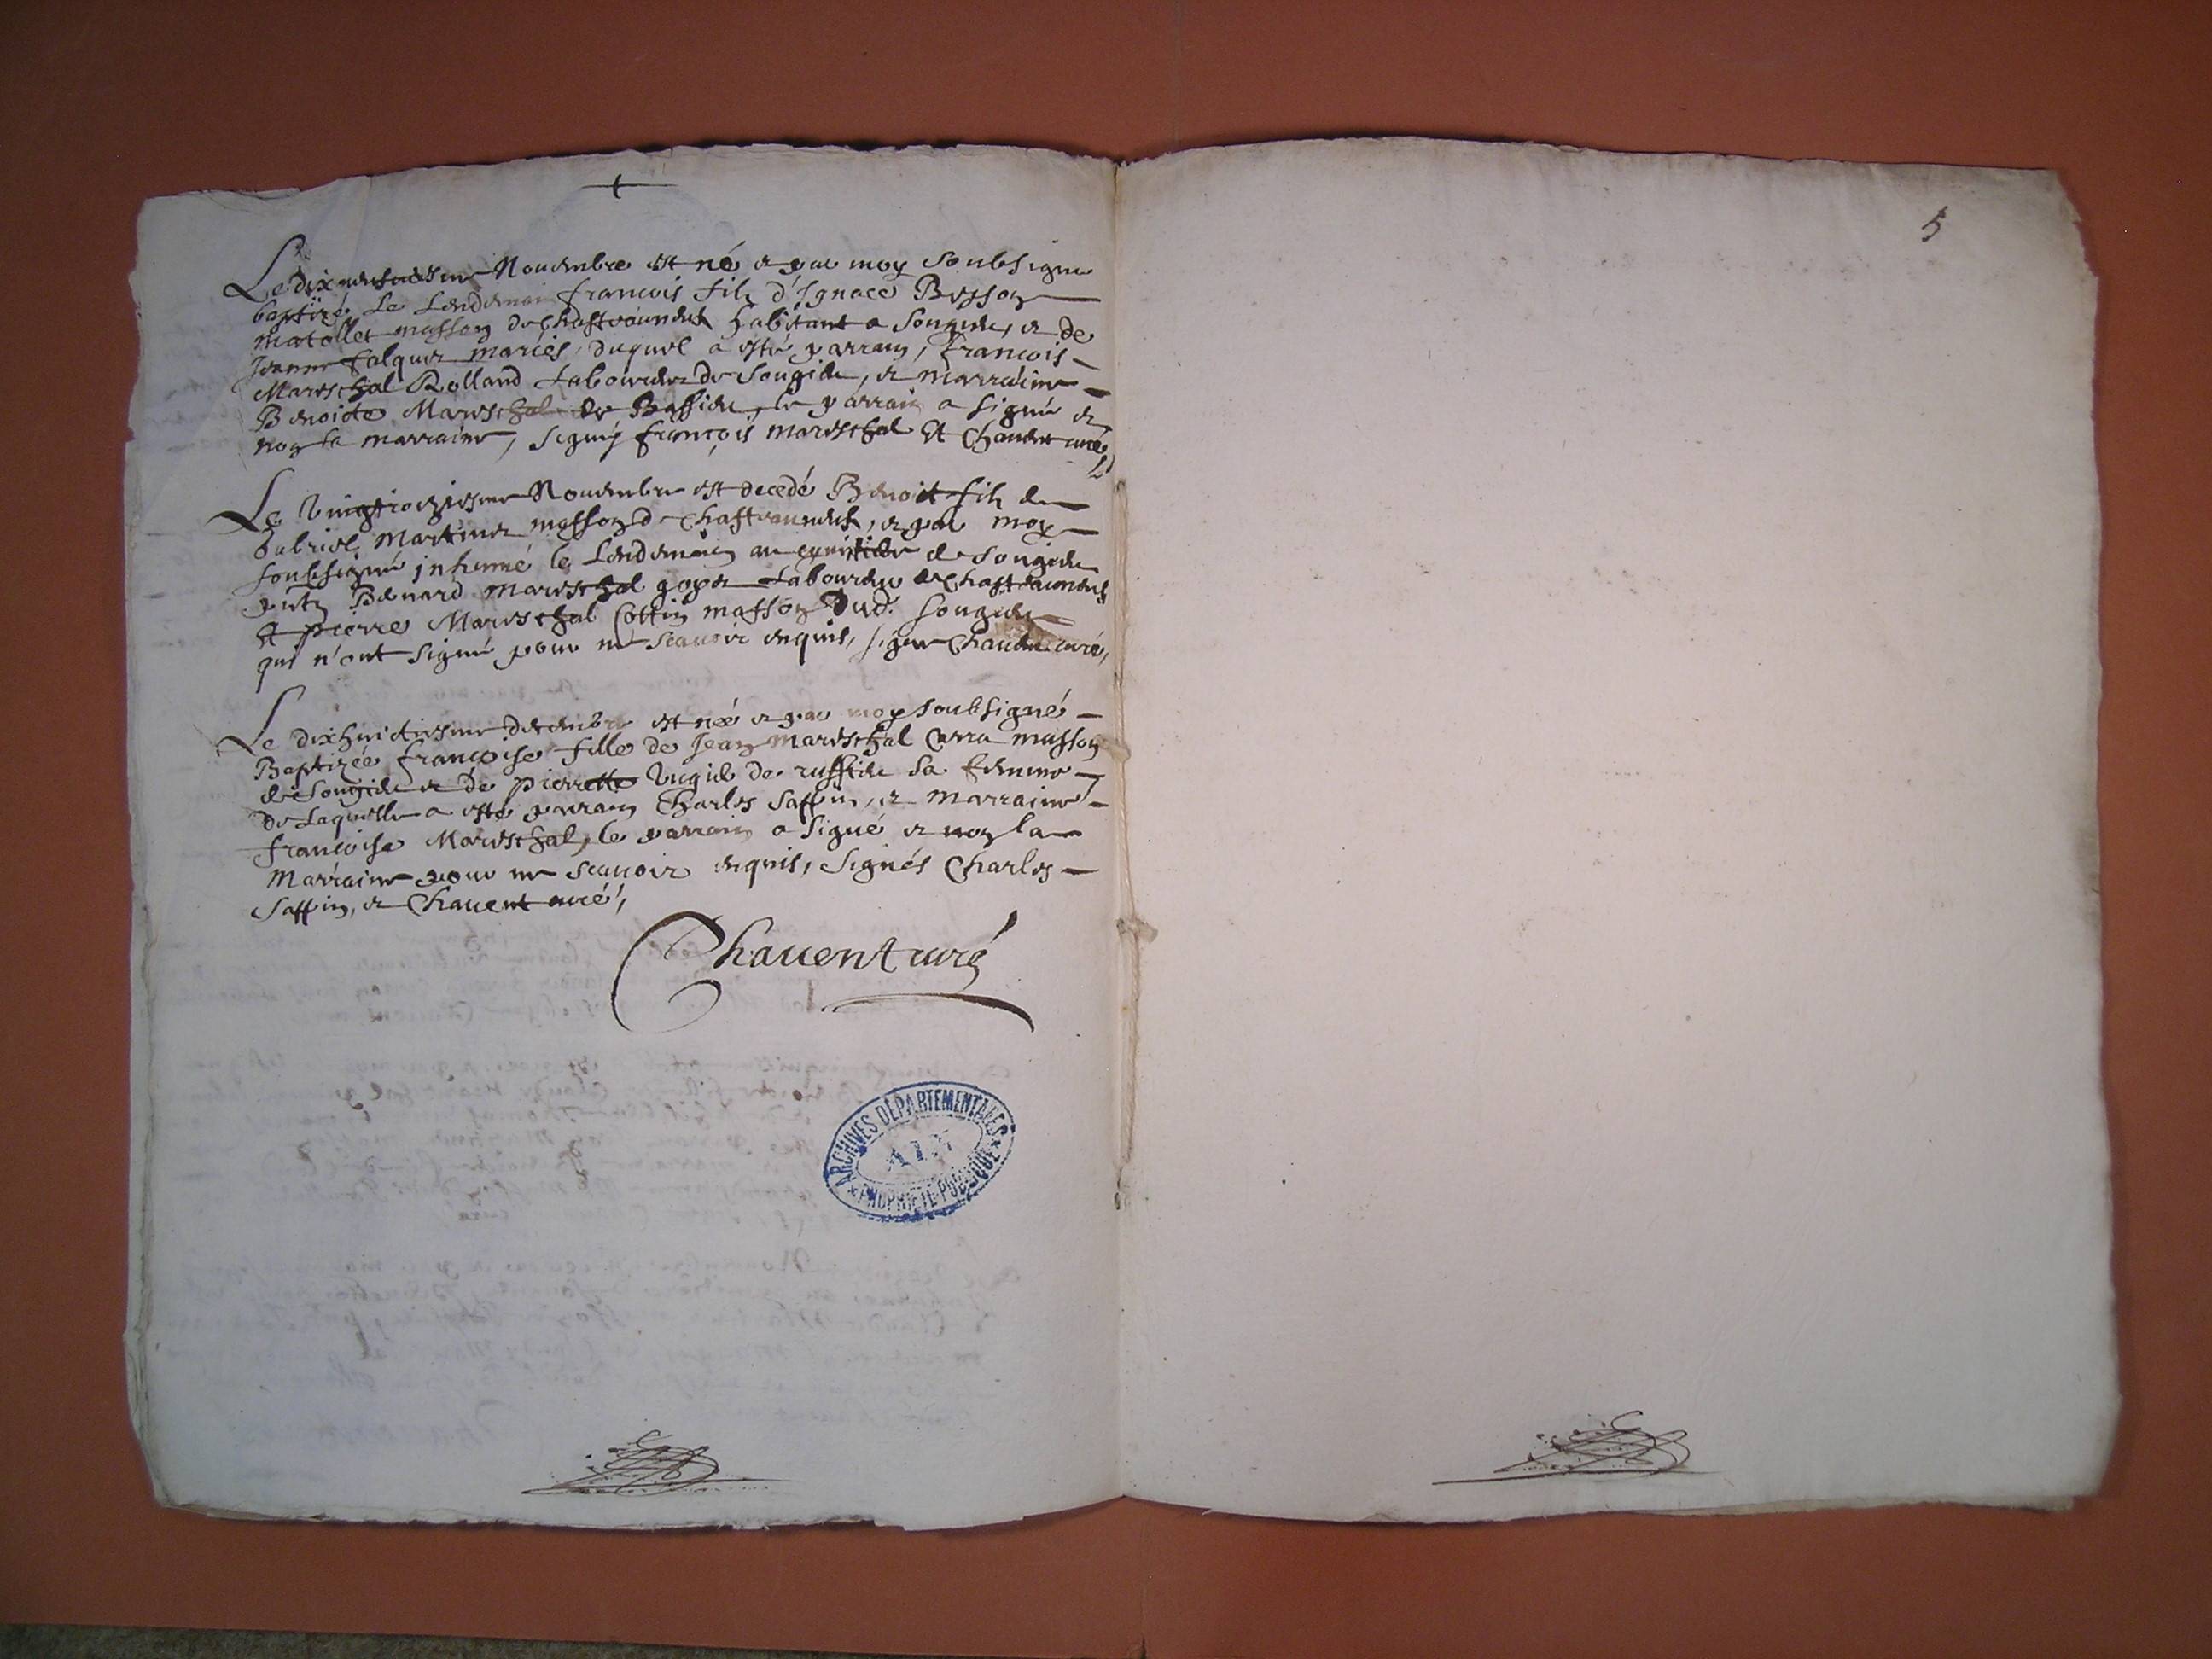 Le dix neufviesme Nouembre est né et par moy soubsigne
baptizé Le Lendemain francois fils d'Ignace Besson
matollet masson de Chasteauneuf habitant a Songieu, et de
Jeanne falquet mariés, duquel a esté parrain, francois
Mareschal Rolland Laboureur de Songieu, et marraine
Benoicte Mareschal de Bassieu, le parrain a signé et
non la marraine, signés françois mareschal Et Chauent curé,
Le vingtroiziesme Nouembre est decedé Benoit fils de
Gabriel Martinet masson de Chasteauneuf, et par moy
soubsigné inhumé le Lendemain au cymitiere de Songieu
pnts Bernard mareschal goyet Laboureur de Chasteauneuf
Et pierre Mareschal Cottin masson Dud. songieu
qui n'ont signé pour ne scauoir enquis, signé Chauent curé,
Le dixhuictiesme decembre est née et par moy soubsigné
Baptizée françoise fille de Jean mareschal Carra masson
de Songieu et de pierrette Vugiel de ruffieu sa femme
De Laquelle a esté parrain Charles Saffin, et marraine
françoise Mareschal, le parrain a signé et non la
Marraine pour ne scauoir enquis, Signés Charles
Saffin, et Chauent curé,
Chauent curé
ARCHIVES DÉPARTEMENTALES
AIN
PROPRIÉTÉ PUBLIQUE
5